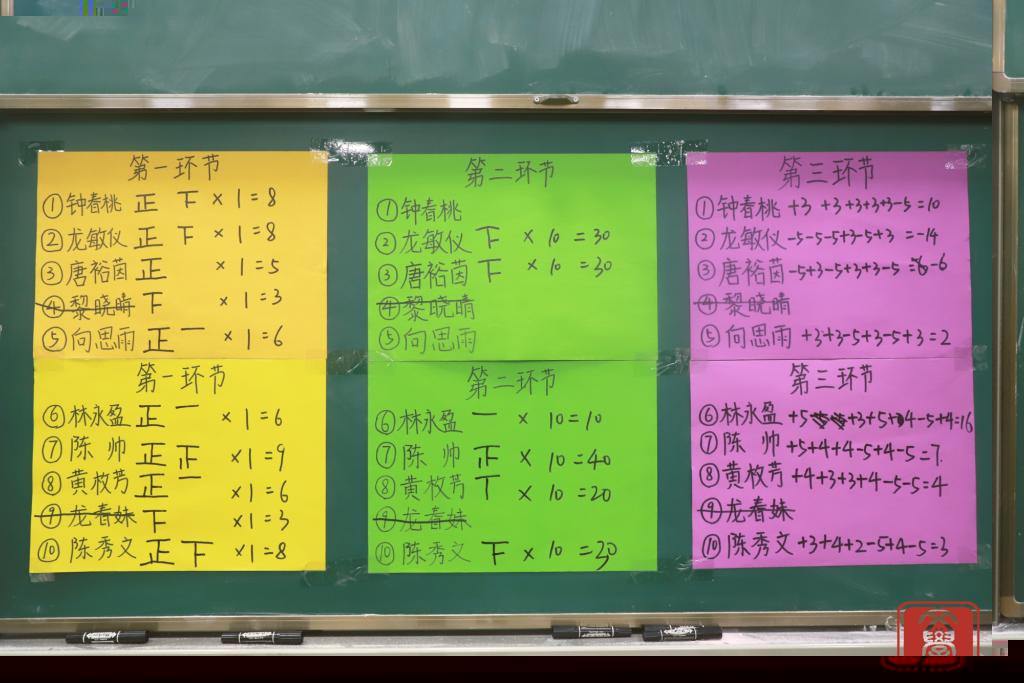 第一环节
①钟春桃 正 下 ×1=8
②龙敏仪 正 下 ×1=8
③唐裕茵 正 ×1=5
④黎晓晴 下 ×1=3
⑤向思雨 正 一 ×1=6
第一环节
⑥林永盈 正 一 ×1=6
⑦陈帅 正 正 ×1=9
⑧黄枚芳 正 一 ×1=6
⑨龙春妹 下 ×1=3
⑩陈秀文 正 下 ×1=8
第二环节
①钟春桃
②龙敏仪 下 ×10=30
③唐裕茵 下 ×10=30
④黎晓晴
⑤向思雨
第二环节
⑥林永盈 一 ×10=10
⑦陈帅 正 ×10=40
⑧黄枚芳 丅 ×10=20
⑨龙春妹
⑩陈秀文 下 ×10=30
第三环节
①钟春桃 +3+3+3+3+3-5=10
②龙敏仪 -5-5-5+3-5+3=-14
③唐裕茵 -5+3-5+3+3-5=-6
④黎晓晴
⑤向思雨 +3+3-5+3-5+3=2
第三环节
⑥林永盈 +5+3+5+4-5+4=16
⑦陈帅 +5+4+4-5+4-5=7
⑧黄枚芳 +4+3+3+4-5-5=4
⑨龙春妹
⑩陈秀文 +3+4+2-5+4-5=3